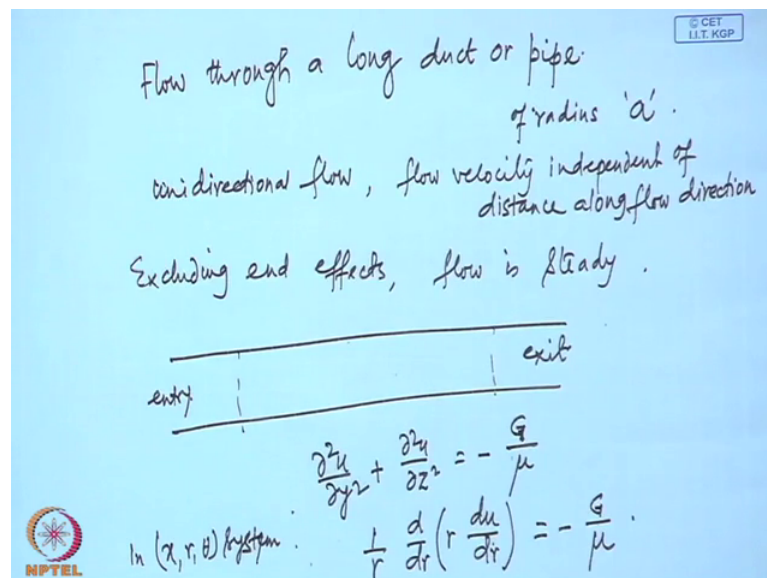 © CET
I.I.T. KGP
Flow through a long duct or pipe.
of radius 'a'.
unidirectional flow, flow velocity independent of
distance along flow direction
Excluding end effects, flow is steady.
exit
entry
∂²u/∂y² + ∂²u/∂z² = - G/μ
In (x, r, θ) system: 1/r d/dr (r du/dr) = - G/μ.
NPTEL